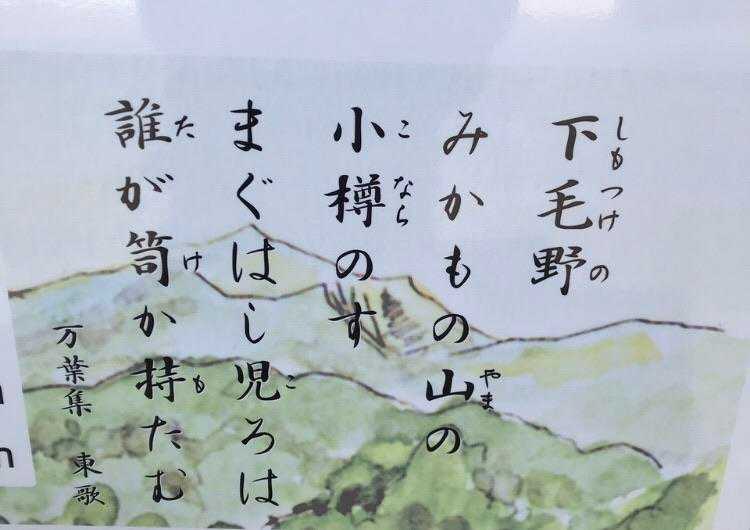 しもつけの
下毛野
やま
みかもの山の
こなら
小樽のす
こ
まぐはし児ろは
た け も
誰が笥か持たむ
万葉集 東歌